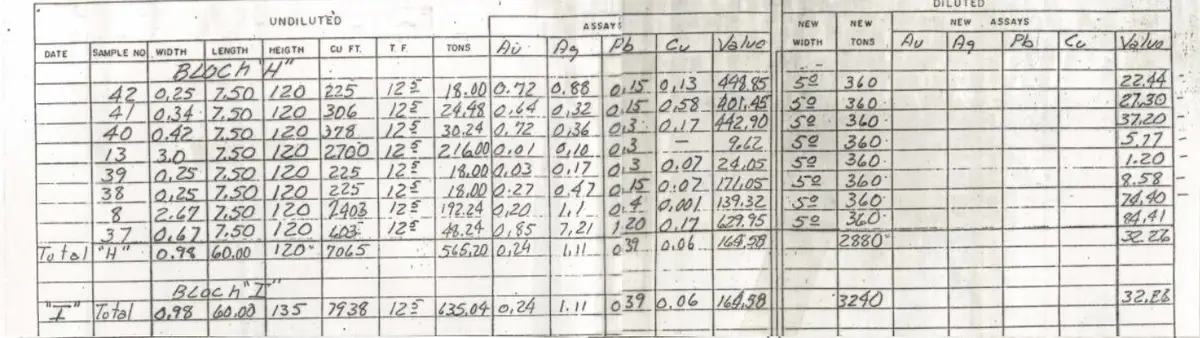 UNDILUTED ASSAYS DILUTED
NEW NEW NEW ASSAYS
DATE SAMPLE NO WIDTH LENGTH HEIGTH CU FT. T. F. TONS Au Ag Pb Cu Value WIDTH TONS Au Ag Pb Cu Value
BLOCH "H"
42 0,25 7.50 120 225 12 5 18.00 0.72 0.88 0,15 0,13 448.85 50 360 22.44
41 0,34 7.50 120 306 12 5 24,48 0.64 0,32 0,15 0,58 401,45 50 360 27.30
40 0.42 7.50 120 378 12 5 30.24 0.72 0,36 0,3 0.17 442,90 50 360 37.20
13 3.0 7,50 120 2700 12 5 216.00 0.01 0,10 0,3 — 9,62 50 360 5.77
39 0,25 7,50 120 225 12 5 18.00 0,03 0,17 0,3 0.07 24,05 50 360 1.20
38 0,25 7.50 120 225 12 5 18,00 0.27 0,47 0,15 0.07 171,05 50 360 8.58
8 2.67 7,50 120 2403 12 5 192.24 0,20 1,1 0,4 0,001 139.32 50 360 74,40
37 0,67 7.50 120 603 12 5 48.24 0,85 7,21 1.20 0,17 629.95 50 360 84,41
Total "H" 0.98 60.00 120 7065 565,20 0,24 1,11 0,39 0,06 164,58 2880 32.26
BLOCH "I"
"I" Total 0,98 60.00 135 7938 12 5 635.04 0,24 1.11 0,39 0,06 164,58 3240